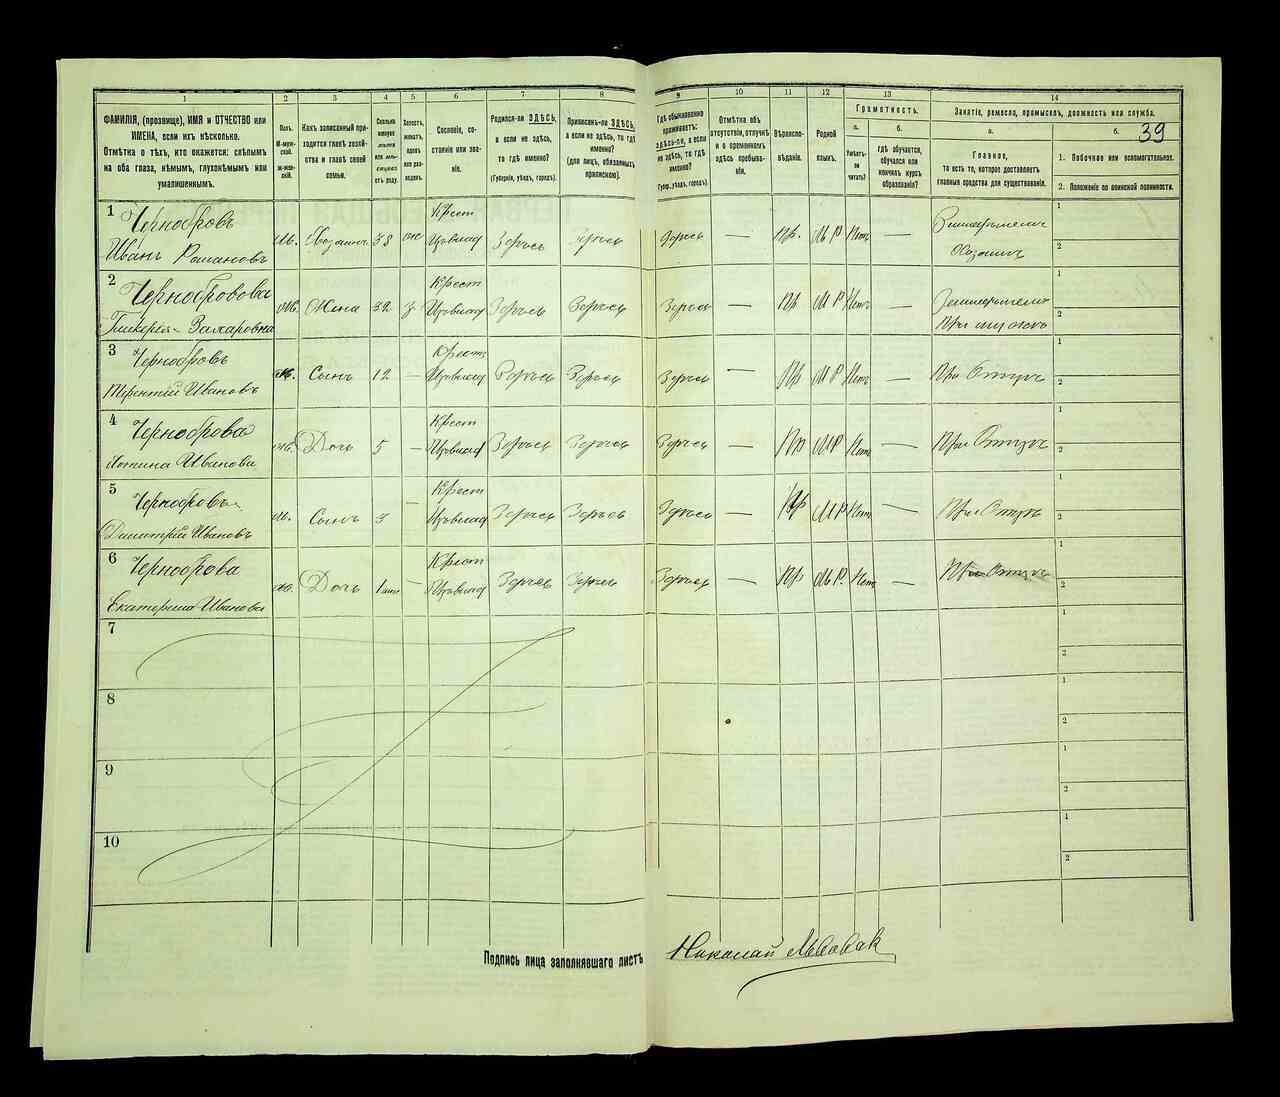 1 2 3 4 5 6 7 8 9 10 11 12 13 14
39
ФАМИЛІЯ, (прозвище), ИМЯ и ОТЧЕСТВО или
ИМЕНА, если ихъ нѣсколько.
Отмѣтка о тѣхъ, кто окажется: слѣпымъ
на оба глаза, нѣмымъ, глухонѣмымъ или
умалишеннымъ.
Полъ.
М-муж-
ской.
Ж-жен-
скій.
Какъ записанный при-
ходится главѣ хозяй-
ства и главѣ своей
семьи.
Сколько
минуло
лѣтъ
или мѣ-
сяцевъ
отъ роду.
Холостъ,
женатъ,
вдовъ
или раз-
веденъ.
Сословіе, со-
стояніе или зва-
ніе.
Родился-ли ЗДѢСЬ,
а если не здѣсь,
то гдѣ именно?
(Губернія, уѣздъ, городъ).
Приписанъ-ли ЗДѢСЬ,
а если не здѣсь, то гдѣ
именно?
(для лицъ, обязанныхъ
припискою).
Гдѣ обыкновенно
проживаетъ:
здѣсь-ли, а если
не здѣсь, то гдѣ
именно?
(Губер., уѣздъ, городъ).
Отмѣтка объ
отсутствіи, отлучкѣ
и о временномъ
здѣсь пребыва-
ніи.
Вѣроиспо-
вѣданіе.
Родной
языкъ.
Грамотность.
а.
Умѣетъ-
ли
читать?
б.
гдѣ обучается,
обучался или
кончилъ курсъ
образованія?
Занятіе, ремесло, промыселъ, должность или служба.
а.
Главное,
то есть то, которое доставляетъ
главныя средства для существованія.
б.
1. Побочное или вспомогательное.
2. Положеніе по воинской повинности.
1 Чернобровъ
Иванъ Романовъ
м. Хозяинъ 38 Крест Здѣсь Здѣсь Здѣсь — Пр. М Р Нет —
Хозяинъ
1
2
2 Чернобровова
Гликерія Захаровна
Жена 32 з Крест Здѣсь Здѣсь Здѣсь — Пр М Р Нет —
При мужѣ
1
2
3 Чернобровъ
Терентій Ивановъ
м. Сынъ 12 — Крест Здѣсь Здѣсь Здѣсь — Пр М Р Нет — При Отцѣ
1
2
4 Черноброва
Иванова
Дочь 5 — Крест Здѣсь Здѣсь Здѣсь — Пр М Р Нет — При Отцѣ
1
2
5 Чернобровъ
Димитрій Ивановъ
м. Сынъ 3 — Крест Здѣсь Здѣсь Здѣсь — Пр М Р Нет — При Отцѣ
1
2
6 Черноброва
Екатерина Иванова
Дочь 1 Крест Здѣсь Здѣсь Здѣсь — Пр М Р. Нет — При Отцѣ
1
2
7
1
2
8
1
2
9
1
2
10
1
2
Подпись лица заполнявшаго листъ Николай